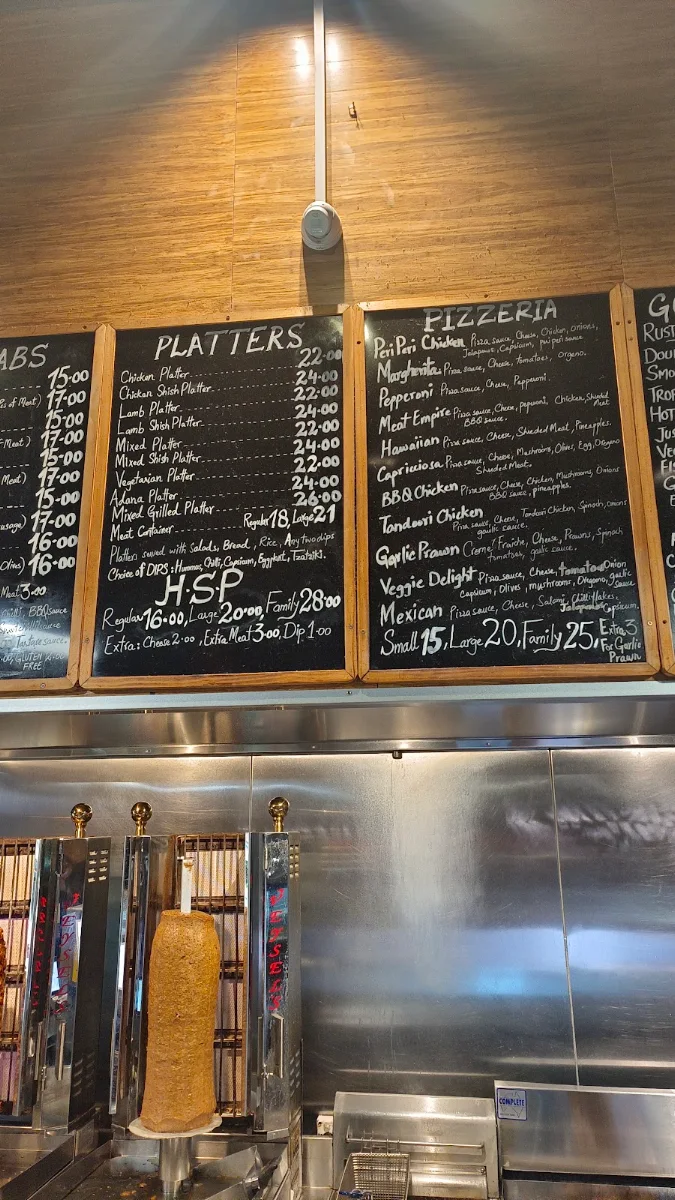 ABS
15.00
s of Meat) 17.00
15.00
f Meat) 17.00
15.00
Meat) 17.00
15.00
usage) 17.00
16.00
16.00
Meat 3.00
BBQ sauce
Tartare sauce
GLUTEN
FREE
PLATTERS
Chicken Platter 22.00
Chicken Shish Platter 24.00
Lamb Platter 22.00
Lamb Shish Platter 24.00
Mixed Platter 22.00
Mixed Shish Platter 24.00
Vegetarian Platter 22.00
Adana Platter 24.00
Mixed Grilled Platter 26.00
Meat Container Regular 18, Large 21
Platters served with Salads, Bread, Rice, Any two dips
Choice of DIPS: Hummos, Chilli, Capsicum, Eggplant, Tzatziki.
H.S.P
Regular 16.00, Large 20.00, Family 28.00
Extra: Cheese 2.00, Extra Meat 3.00, Dip 1.00
PIZZERIA
Peri Peri Chicken Pizza sauce, Cheese, Chicken, onions,
Jalapenos, Capsicum, peri peri sauce
Margherita Pizza sauce, Cheese, tomatoes, oregano.
Pepperoni Pizza sauce, Cheese, Pepperoni.
Meat Empire Pizza sauce, Cheese, peperoni, Chicken, Shaded Meat
BBQ sauce.
Hawaiian Pizza sauce, Cheese, Shreded Meat, Pineapples.
Capricciosa Pizza sauce, Cheese, Mushrooms, Olives, Egg, Oregano
Shreded Meat.
BBQ Chicken Pizza sauce, Cheese, Chicken, Mushrooms, Onions
BBQ sauce, pineapples.
Tandoori Chicken Pizza sauce, Cheese, Tandoori Chicken, Spinach, onions
garlic sauce.
Garlic Prawn Creme Fraiche, Cheese, Prawns, Spinach
tomatoes, garlic sauce.
Veggie Delight Pizza sauce, Cheese, tomatoes Onion
Capsicum, Olives, mushrooms, Oregano, garlic sauce
Mexican Pizza sauce, Cheese, Salami, Chilli flakes,
Jalapenos Capsicum.
Small 15, Large 20, Family 25, Extra 3
For Garlic
Prawn
COMPLETE